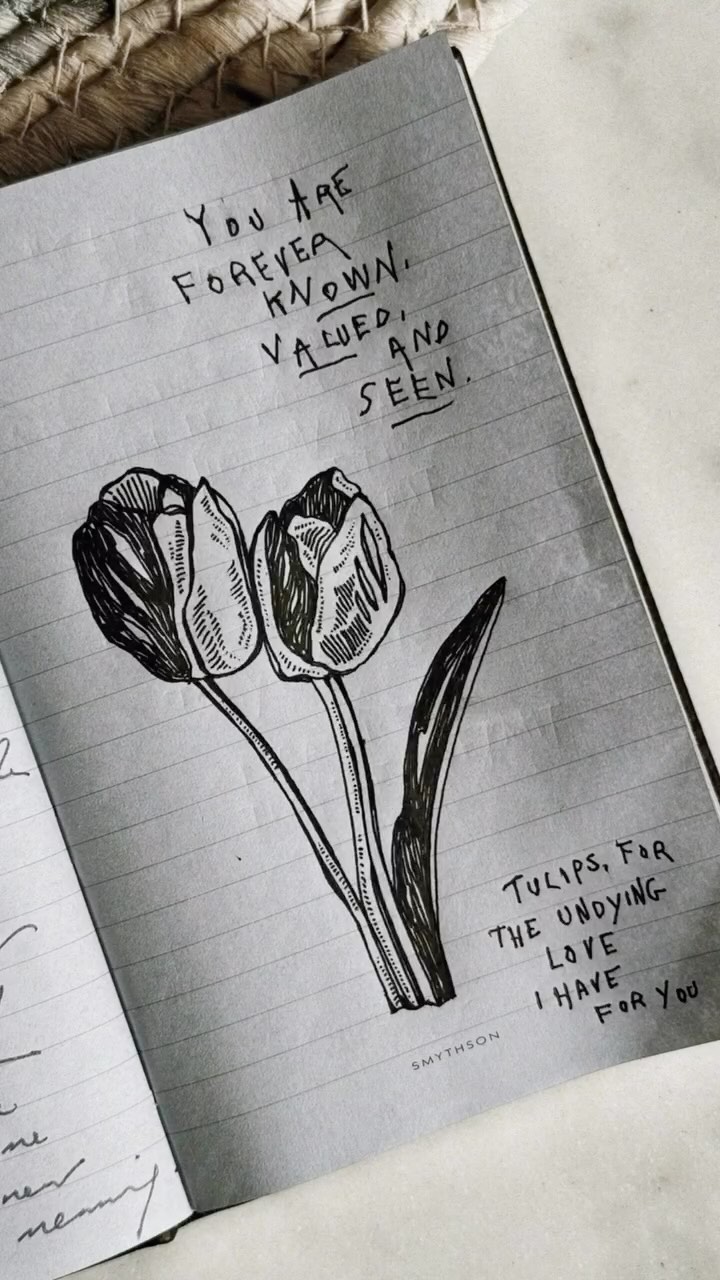 YOU ARE
FOREVER
KNOWN.
VALUED,
AND
SEEN.
TULIPS, FOR
THE UNDYING
LOVE
I HAVE
FOR YOU
SMYTHSON
me
new